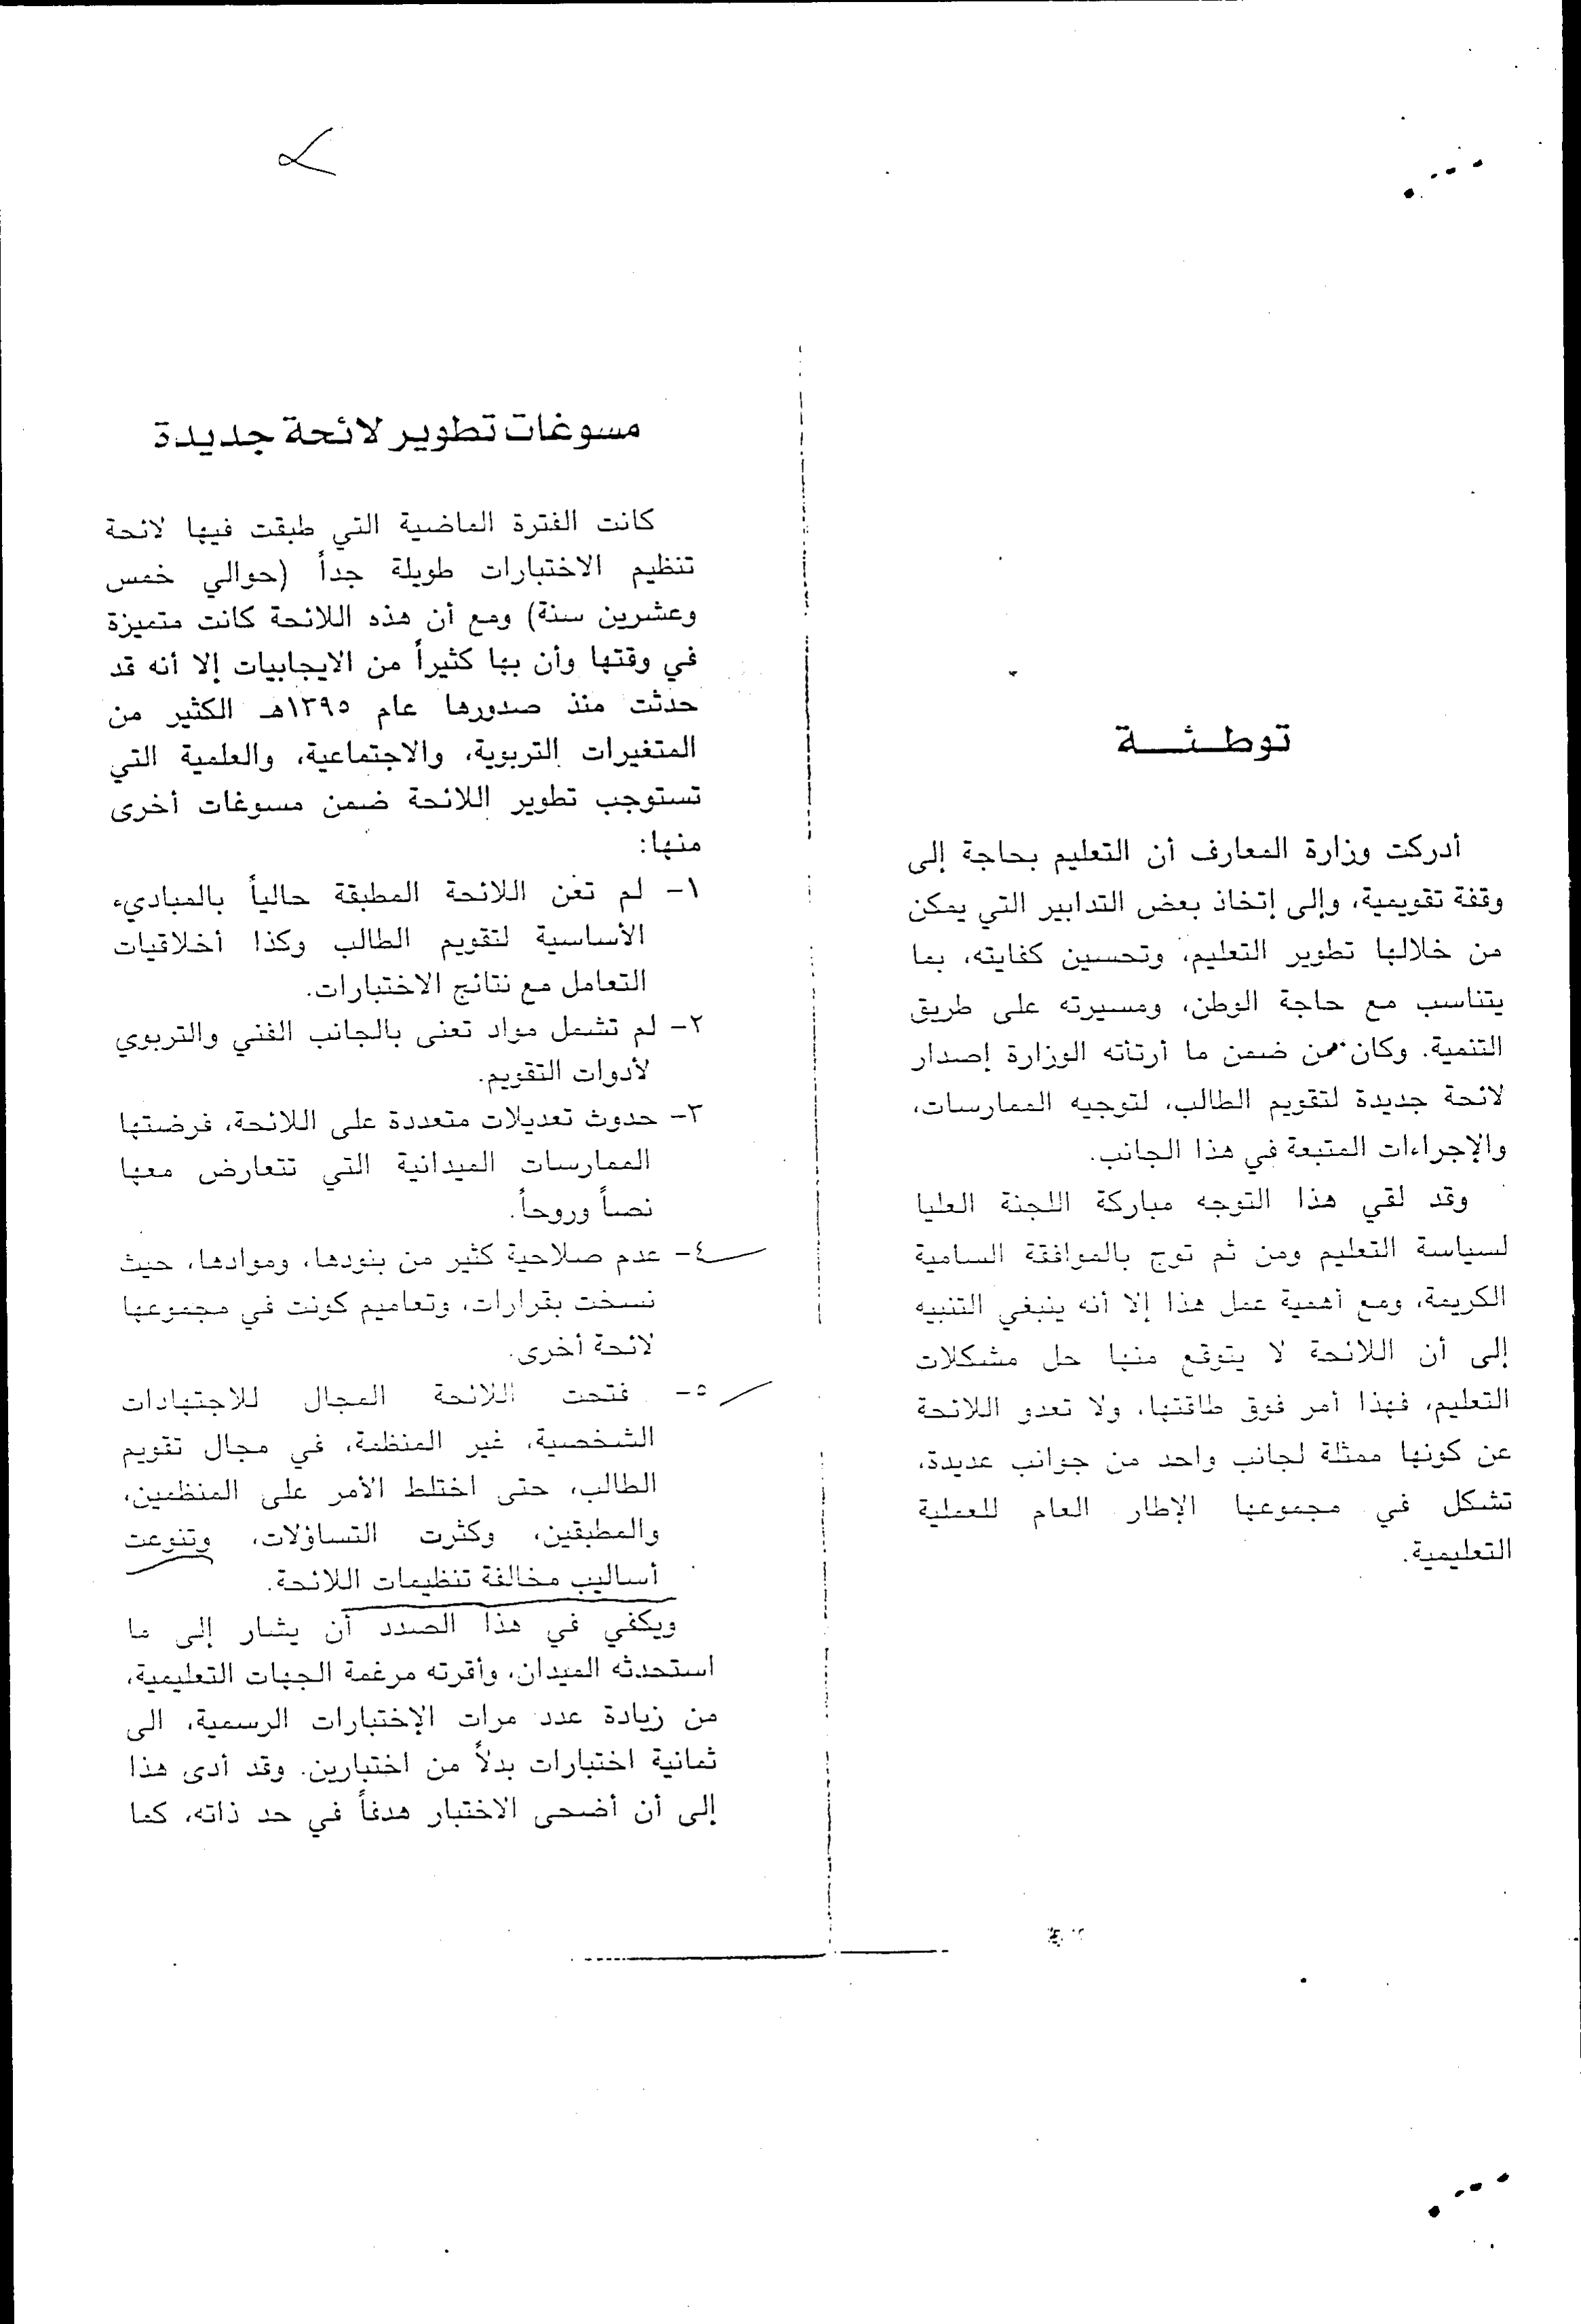 توطئـــة
أدركت وزارة المعارف أن التعليم بحاجة إلى
وقفة تقويمية، وإلى إتخاذ بعض التدابير التي يمكن
من خلالها تطوير التعليم، وتحسين كفايته، بما
يتناسب مع حاجة الوطن، ومسيرته على طريق
التنمية. وكان من ضمن ما أرتأته الوزارة إصدار
لائحة جديدة لتقويم الطالب، لتوجيه الممارسات،
والإجراءات المتبعة في هذا الجانب.
وقد لقي هذا التوجه مباركة اللجنة العليا
لسياسة التعليم ومن ثم توج بالموافقة السامية
الكريمة، ومع أهمية عمل هذا إلا أنه ينبغي التنبيه
إلى أن اللائحة لا يتوقع منها حل مشكلات
التعليم، فهذا أمر فوق طاقتها، ولا تعدو اللائحة
عن كونها ممثلة لجانب واحد من جوانب عديدة،
تشكل في مجموعها الإطار العام للعملية
التعليمية.
مسوغات تطوير لائحة جديدة
كانت الفترة الماضية التي طبقت فيها لائحة
تنظيم الاختبارات طويلة جداً (حوالي خمس
وعشرين سنة) ومع أن هذه اللائحة كانت متميزة
في وقتها وأن بها كثيراً من الايجابيات إلا أنه قد
حدثت منذ صدورها عام ١٣٩٥هـ الكثير من
المتغيرات التربوية، والاجتماعية، والعلمية التي
تستوجب تطوير اللائحة ضمن مسوغات أخرى
منها:
١- لم تعن اللائحة المطبقة حالياً بالمباديء
الأساسية لتقويم الطالب وكذا أخلاقيات
التعامل مع نتائج الاختبارات.
٢- لم تشمل مواد تعنى بالجانب الفني والتربوي
لأدوات التقويم.
٣- حدوث تعديلات متعددة على اللائحة، فرضتها
الممارسات الميدانية التي تتعارض معها
نصاً وروحاً.
٤- عدم صلاحية كثير من بنودها، وموادها، حيث
نسخت بقرارات، وتعاميم كونت في مجموعها
لائحة أخرى.
٥- فتحت اللائحة المجال للاجتهادات
الشخصية، غير المنظمة، في مجال تقويم
الطالب، حتى اختلط الأمر على المنظمين،
والمطبقين، وكثرت التساؤلات، وتنوعت
أساليب مخالفة تنظيمات اللائحة.
ويكفي في هذا الصدد أن يشار إلى ما
استحدثه الميدان، وأقرته مرغمة الجهات التعليمية،
من زيادة عدد مرات الإختبارات الرسمية، الى
ثمانية اختبارات بدلاً من اختبارين. وقد أدى هذا
إلى أن أضحى الاختبار هدفاً في حد ذاته، كما